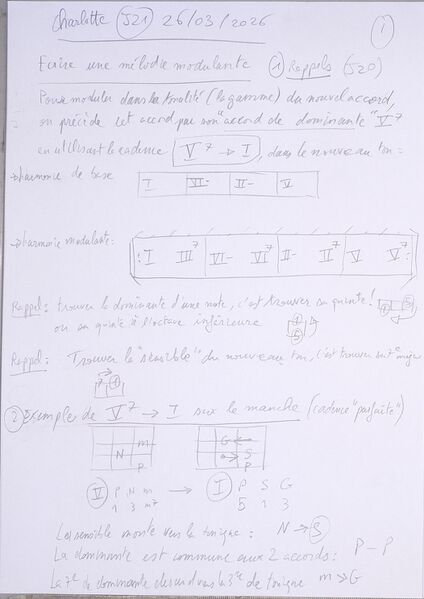 Charlotte (J21) 26/03/2026
1
Ecrire une mélodie modulante ① Rappels (J20)
Pour moduler dans la tonalité (la gamme) du nouvel accord,
on précède cet accord par son "accord de dominante" V7
en utilisant la cadence V7 → I, dans le nouveau ton =
→ harmonie de base
I VI- II- V
→ harmonie modulante:
I III7 VI- VI7 II- II7 V V7
Rappel: trouver la dominante d'une note, c'est trouver sa quinte!
ou sa quarte à l'octave inférieure
1 5
1
5
Rappel: Trouver la "sensible" du nouveau ton, c'est trouver sa 7e majeure
7 1
② Exemple de V7 → I sur le manche (cadence "parfaite")
N m
P
G
S
P
V P N m → I P S G
1 3 m7 5 1 3
La sensible monte vers la tonique: N → S
La dominante est commune aux 2 accords: P – P
La 7e de dominante descend vers la 3ce de tonique m → G